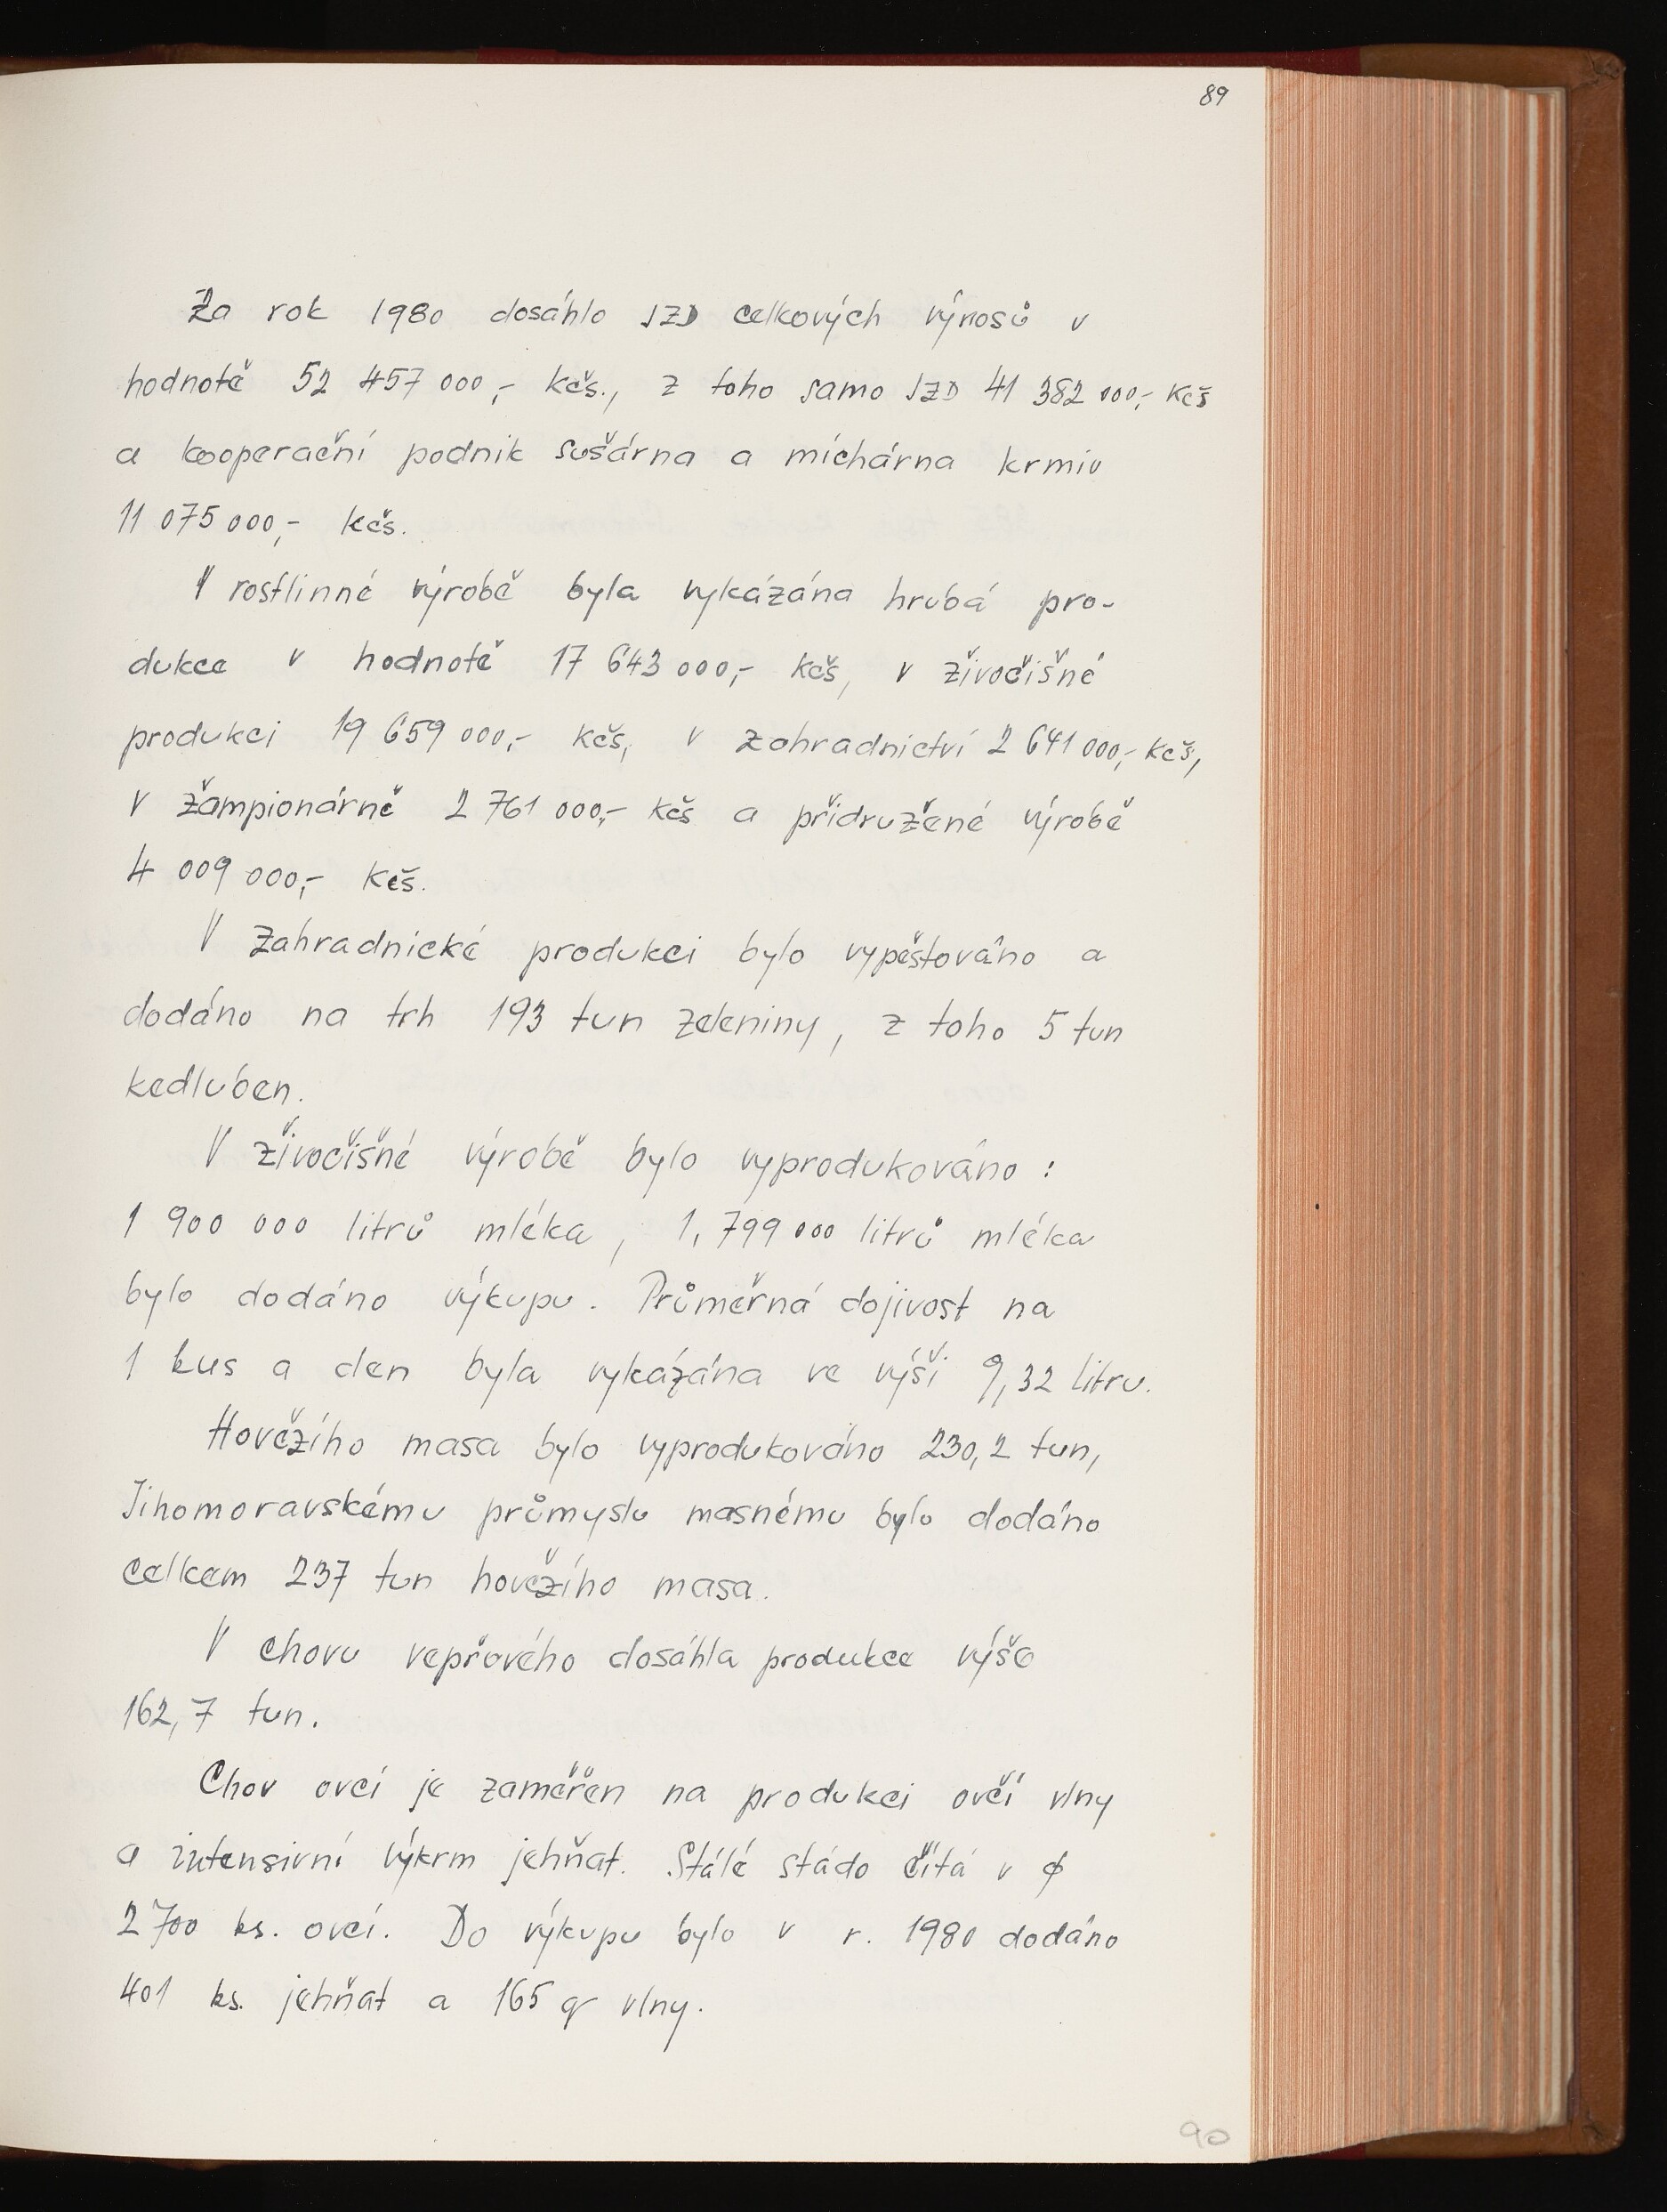 89
Za rok 1980 dosáhlo JZD celkových výnosů v
hodnotě 52 457 000,- kčs., z toho samo JZD 41 382 000,- kčs
a kooperační podnik sušárna a míchárna krmiv
11 075 000,- kčs.
V rostlinné výrobě byla vykázána hrubá pro-
dukce v hodnotě 17 643 000,- kčs, v živočišné
produkci 19 659 000,- kčs, v zahradnictví 2 641 000,- kčs,
v žampionárně 2 761 000,- kčs a přidružené výrobě
4 009 000,- kčs.
V zahradnické produkci bylo vypěstováno a
dodáno na trh 193 tun zeleniny, z toho 5 tun
kedluben.
V živočišné výrobě bylo vyprodukováno :
1 900 000 litrů mléka, 1,799 000 litrů mléka
bylo dodáno výkupu. Průměrná dojivost na
1 kus a den byla vykázána ve výši 9,32 litru.
Hovězího masa bylo vyprodukováno 230,2 tun,
Jihomoravskému průmyslu masnému bylo dodáno
celkem 237 tun hovězího masa.
V chovu vepřového dosáhla produkce výše
162,7 tun.
Chov ovcí je zaměřen na produkci ovčí vlny
a intensivní výkrm jehňat. Stálé stádo čítá v ϕ
2 700 ks. ovcí. Do výkupu bylo v r. 1980 dodáno
401 ks. jehňat a 165 q vlny.
90